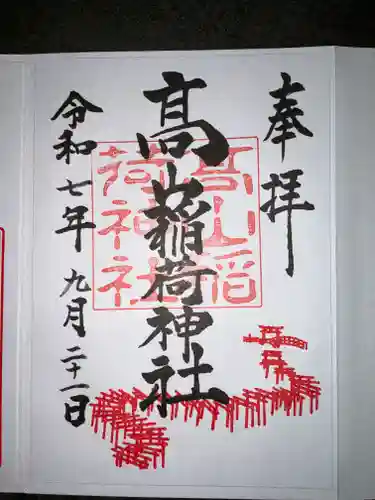 奉拝
髙山稲荷神社
高山稲
荷神社
令和七年九月二十一日